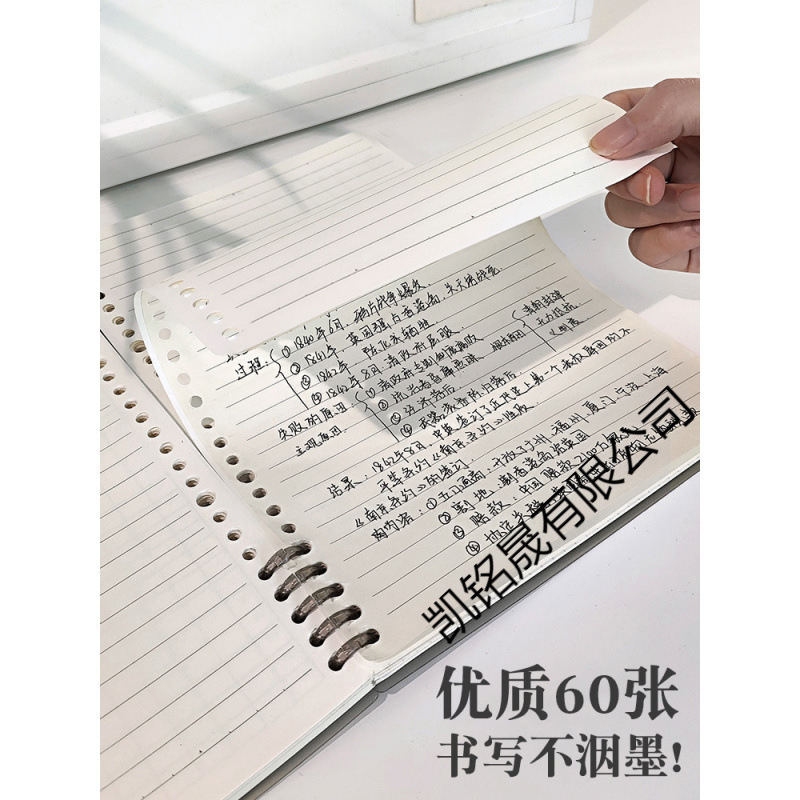 ① 1840年6月，鸦片战争爆发
过程：② 1841年，英国强占香港岛，关天培战死
③ 1842年，陈化成牺牲
④ 1842年8月，清政府屈服
失败的原因
主观原因
① 清政府专制制度腐败
③ 经济落后
④ 武器装备的旧落后
根本原因
结果：1842年8月，中英签订了近代史上第一个丧权辱国的不
平等条约《南京条约》
《南京条约》的签订
内容：① 五口通商：开放了广州、福州、厦门、宁波、上海
② 割地：割香港岛给英国
③ 赔款：中国赔款2100万
④ 协定关税
凯铭晟有限公司
优质60张
书写不洇墨!